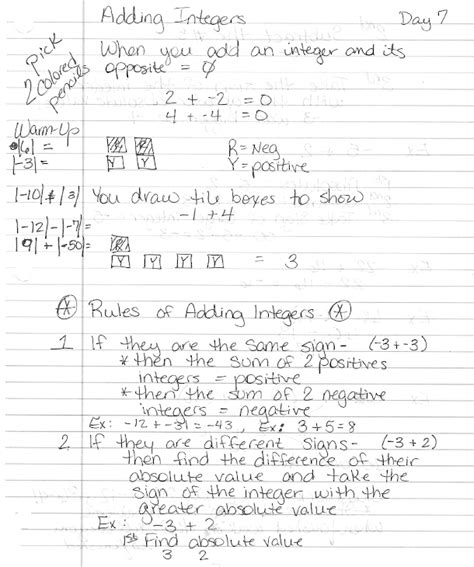 Adding Integers Day 7
pick
2 colored
pencils
When you add an integer and its
opposite = 0
2 + -2 = 0
4 + -4 = 0
Warm-Up
|6| =
|-3| =
R = Neg
Y = positive
Y Y
|-10| + |3|
You draw tile boxes to show
-1 + 4
|-12| - |-7| =
|9| + |-50| =
R
Y Y Y Y = 3
* Rules of Adding Integers *
1 If they are the same sign - (-3 + -3)
* then the sum of 2 positives
integers = positive
* then the sum of 2 negative
integers = negative
Ex: -12 + -31 = -43, Ex: 3 + 5 = 8
2 If they are different signs - (-3 + 2)
then find the difference of their
absolute value and take the
sign of the integer with the
greater absolute value
Ex: -3 + 2
1st Find absolute value
3 2